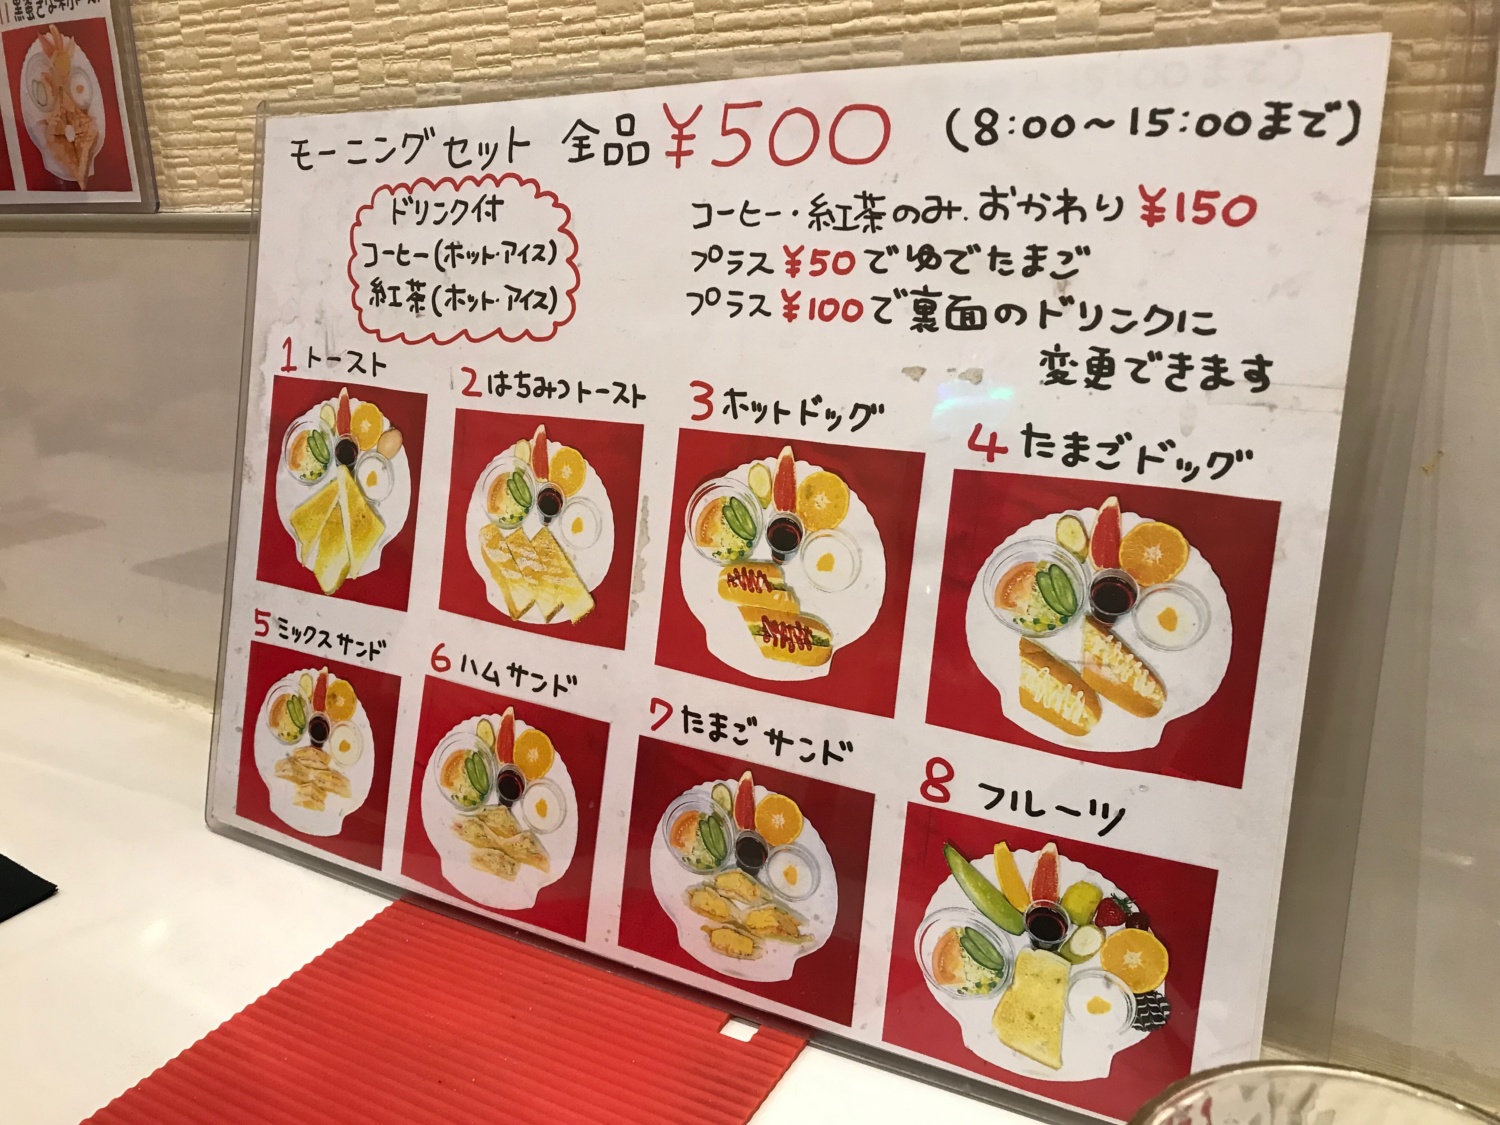 モーニングセット 全品 ¥500 (8:00～15:00まで)
ドリンク付
コーヒー(ホット・アイス)
紅茶(ホット・アイス)
コーヒー・紅茶のみ.おかわり ¥150
プラス ¥50でゆでたまご
プラス ¥100で裏面のドリンクに
変更できます
1 トースト
2 はちみつトースト
3 ホットドッグ
4 たまごドッグ
5 ミックスサンド
6 ハムサンド
7 たまごサンド
8 フルーツ